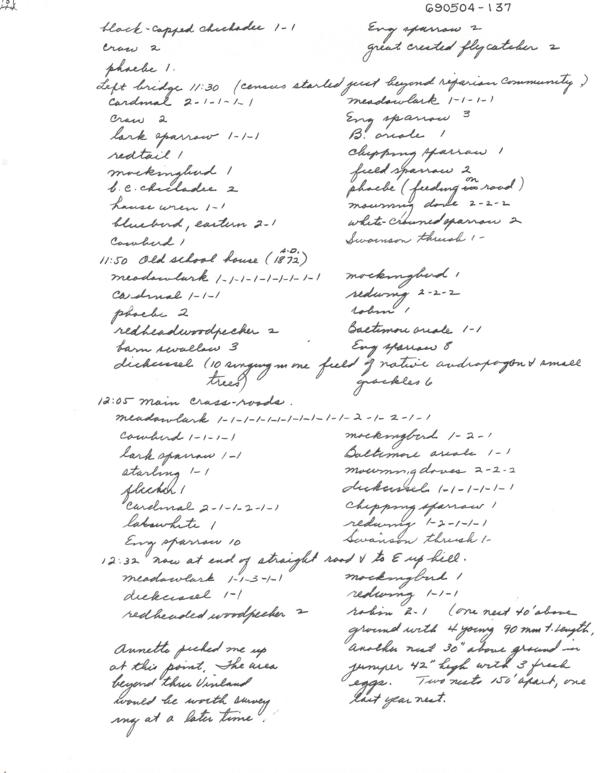 690504-137
black-capped chickadee 1-1
crow 2
phoebe 1.
Eng sparrow 2
great crested flycatcher 2
Left bridge 11:30 (census started just beyond riparian community.)
cardinal 2-1-1-1-1
crow 2
lark sparrow 1-1-1
redtail 1
mockingbird 1
b.c. chickadee 2
house wren 1-1
bluebird, eastern 2-1
cowbird 1
meadowlark 1-1-1-1
Eng sparrow 3
B. oriole 1
chipping sparrow 1
field sparrow 2
phoebe (feeding on road)
mourning dove 2-2-2
white-crowned sparrow 2
Swainson thrush 1-
11:50 Old school house (A.D. 1872)
meadowlark 1-1-1-1-1-1-1-1
cardinal 1-1-1
phoebe 2
redheadwoodpecker 2
barn swallow 3
mockingbird 1
redwing 2-2-2
robin 1
Baltimore oriole 1-1
Eng sparrow 8
dickcissel (10 singing in one field of native andropogon & small
trees)
grackles 6
12:05 main cross-roads.
meadowlark 1-1-1-1-1-1-1-1-1-1-2-1-2-1-1
cowbird 1-1-1-1
lark sparrow 1-1
starling 1-1
flicker 1
cardinal 2-1-1-2-1-1
bobwhite 1
Eng sparrow 10
mockingbird 1-2-1
Baltimore oriole 1-1
mourning doves 2-2-2
dickcissel 1-1-1-1-1-1
chipping sparrow 1
redwing 1-2-1-1-1
Swainson thrush 1-
12:32 now at end of straight road & to E up hill.
meadowlark 1-1-3-1-1
dickcissel 1-1
redheaded woodpecker 2
mockingbird 1
redwing 1-1-1
robin 2-1 (one nest 40' above
ground with 4 young 90 mm t. length,
another nest 30" above ground in
juniper 42" high with 3 fresh
eggs. Two nests 150' apart, one
last year nest.
Annette picked me up
at this point. The area
beyond thru Vinland
would be worth survey
ing at a later time.